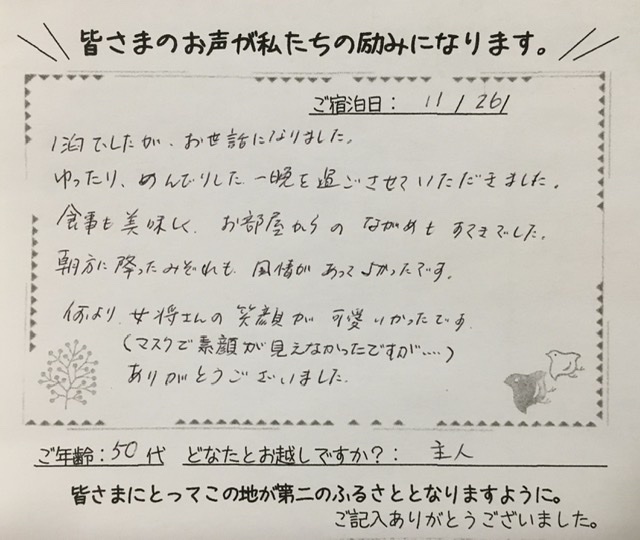 皆さまのお声が私たちの励みになります。
ご宿泊日： 11/26/
1泊でしたが、お世話になりました。
ゆったり、めんびりした一晩を過ごさせていただきました。
食事も美味しく、お部屋からのながめもすてきでした。
朝方に降ったみぞれも、風情があってよかったです。
何より女将さんの笑顔が可愛いかったです
(マスクで素顔が見えなかったですが....)
ありがとうございました.
ご年齢：50代 どなたとお越しですか？： 主人
皆さまにとってこの地が第二のふるさととなりますように。
ご記入ありがとうございました。